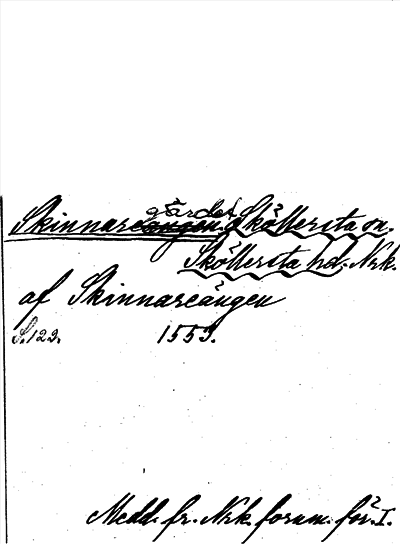 gärdet
Skinnareängen, Sköllersta sn.
Sköllersta hd. Nrk.
af Skinnareängen
S. 123. 1553.
Medd. fr. Nrk. fornm. för. I.